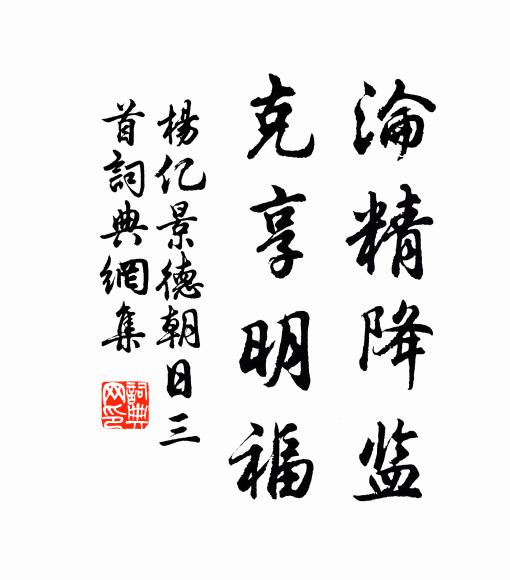 淪精降监
克享明福
楊亿景德朝日三
首詞典網集
詞典网印